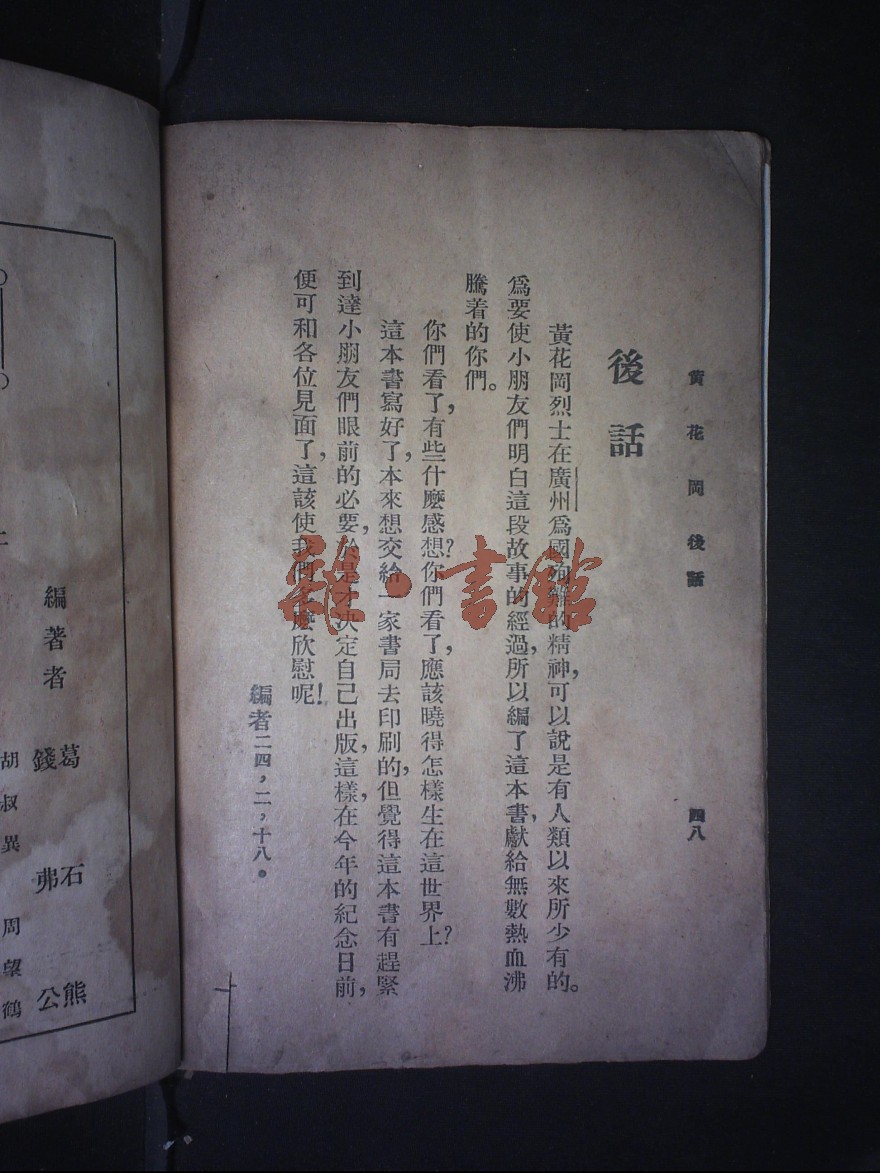 黃花岡後話
四八
後話
黃花岡烈士在廣州爲國殉難的精神，可以說是有人類以來所少有的。
爲要使小朋友們明白這段故事的經過，所以編了這本書，獻給無數熱血沸
騰着的你們。
你們看了，有些什麼感想？你們看了，應該曉得怎樣生在這世界上？
這本書寫好了，本來想交給一家書局去印刷的，但覺得這本書有趕緊
到達小朋友們眼前的必要，於是才決定自己出版，這樣，在今年的紀念日前，
便可和各位見面了，這該使我們多麼欣慰呢！
編者二四，二，十八。
編著者
葛石熊
錢弗公
胡叔異
周望鶴